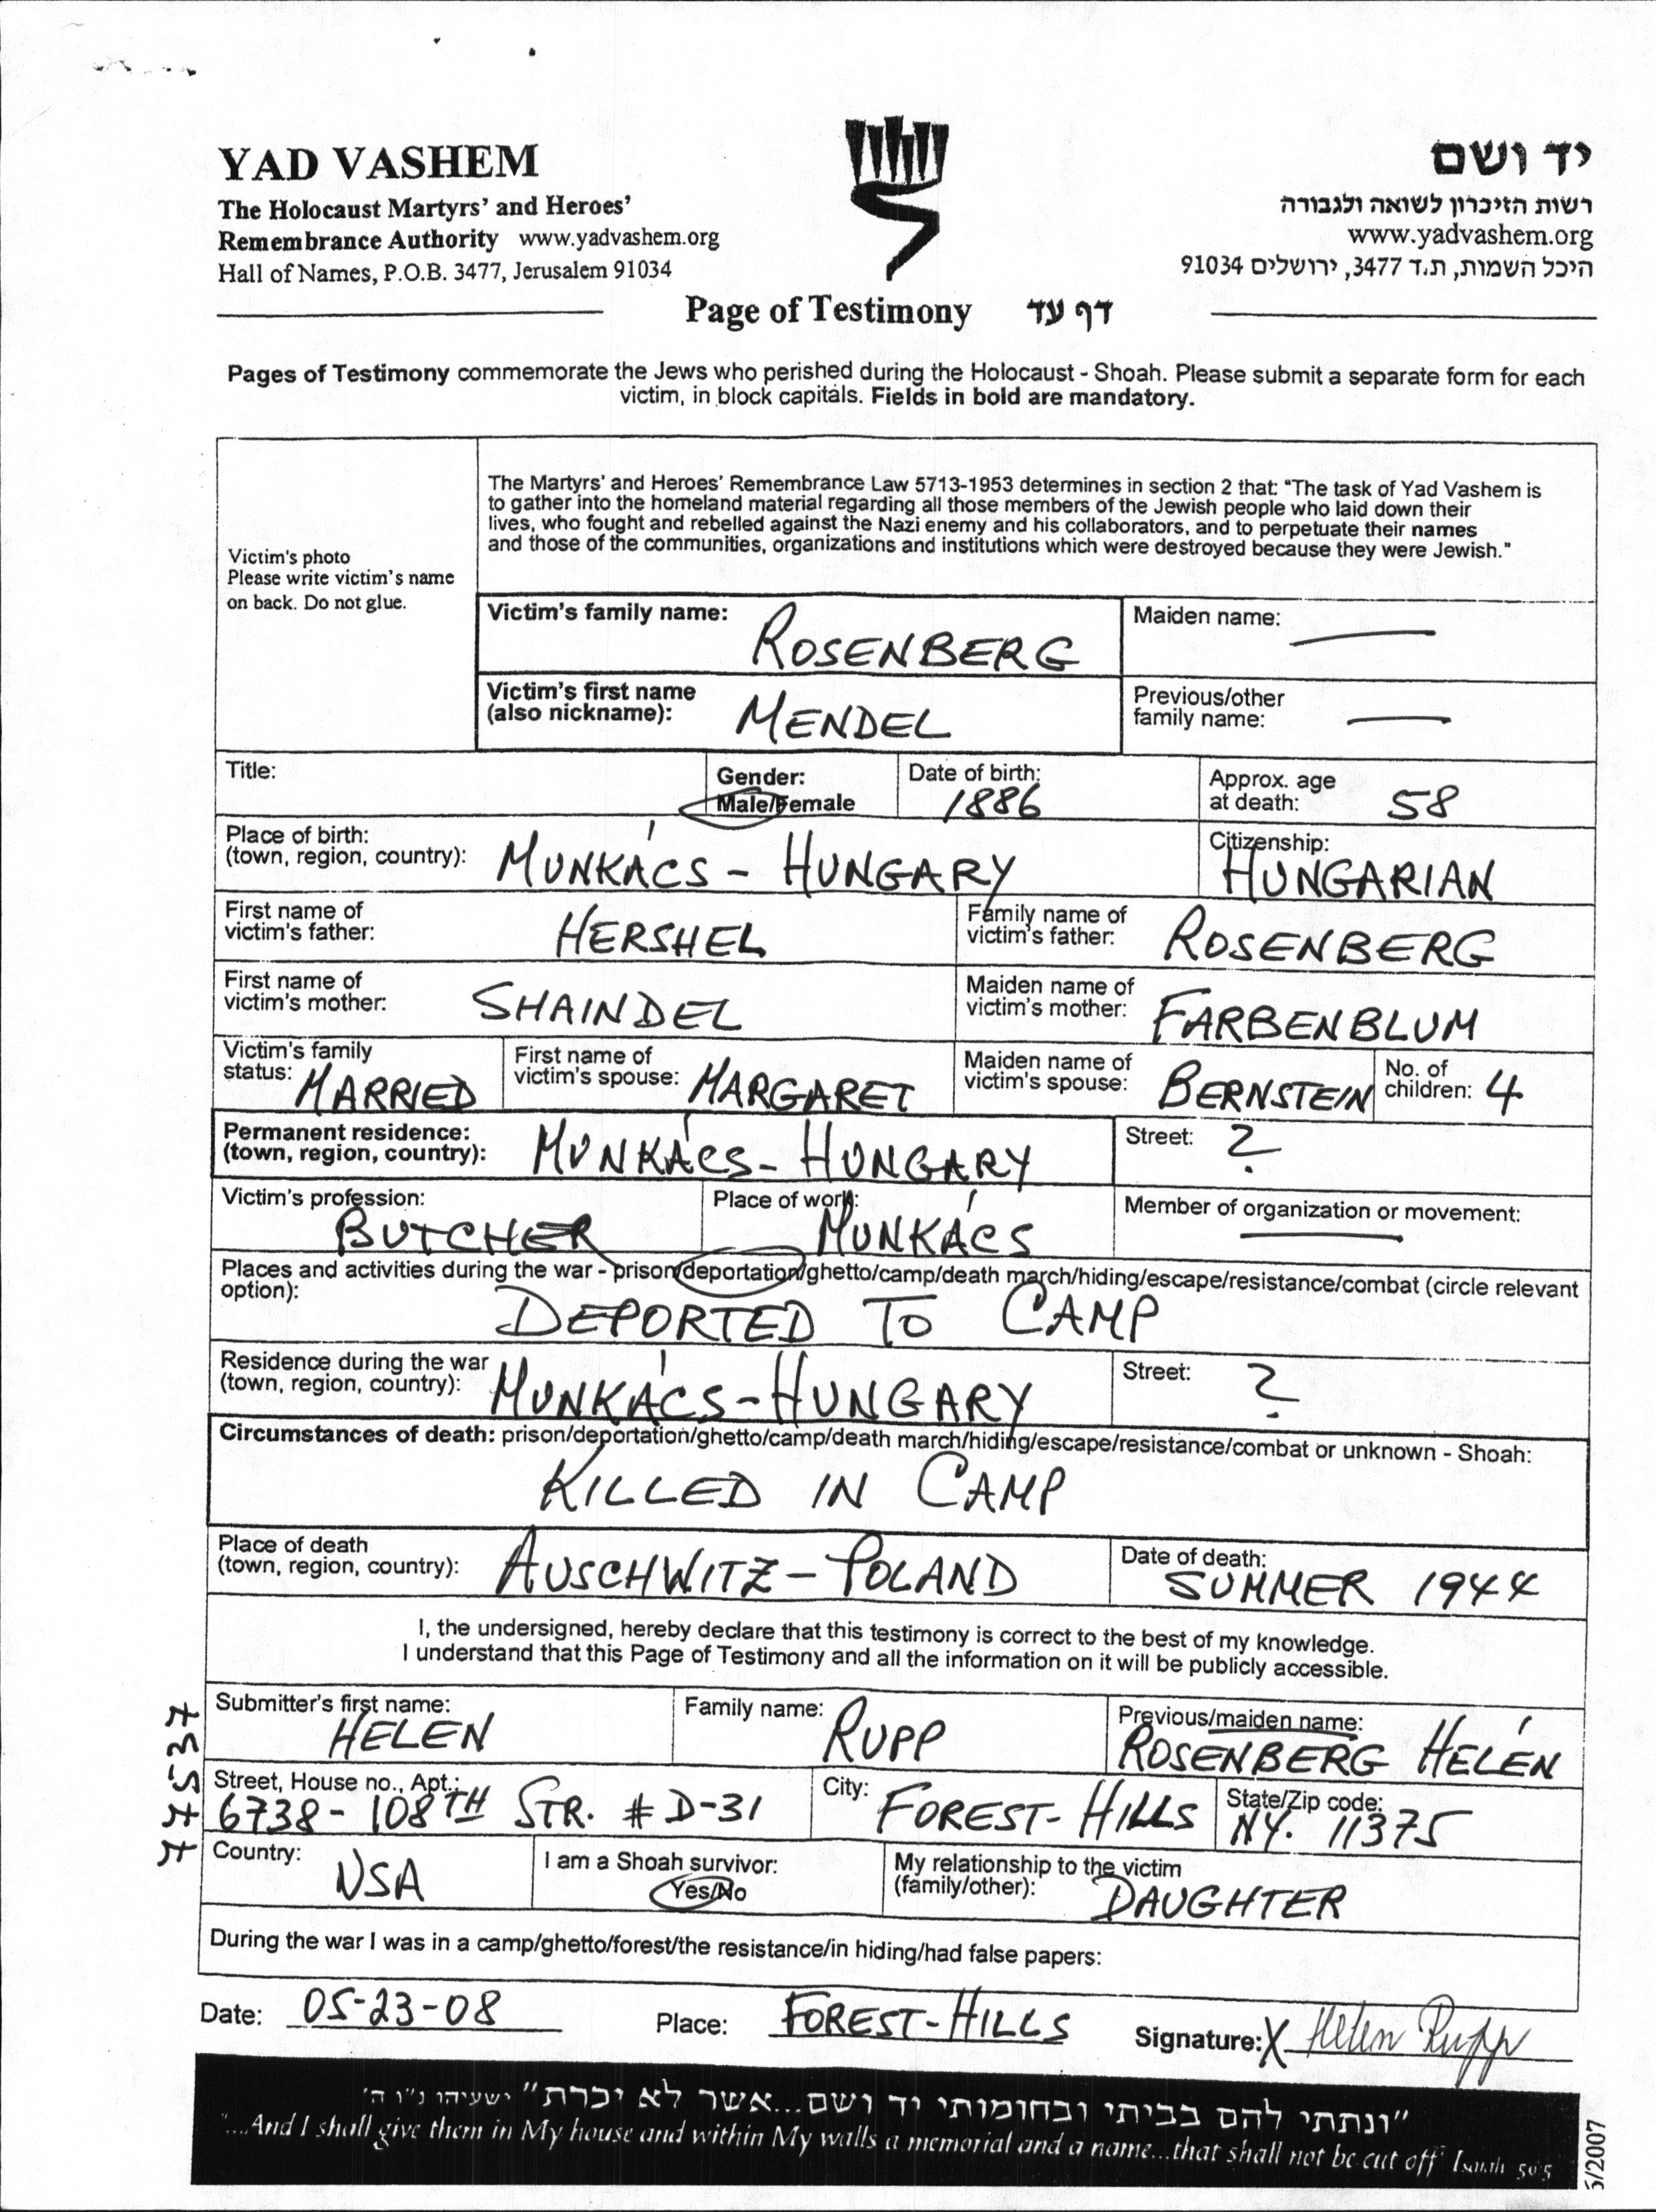 YAD VASHEM
The Holocaust Martyrs' and Heroes'
Remembrance Authority www.yadvashem.org
Hall of Names, P.O.B. 3477, Jerusalem 91034
יד ושם
רשות הזיכרון לשואה ולגבורה
www.yadvashem.org
היכל השמות, ת.ד 3477, ירושלים 91034
Page of Testimony דף עד
Pages of Testimony commemorate the Jews who perished during the Holocaust - Shoah. Please submit a separate form for each
victim, in block capitals. Fields in bold are mandatory.
Victim's photo
Please write victim's name
on back. Do not glue.
The Martyrs' and Heroes' Remembrance Law 5713-1953 determines in section 2 that: "The task of Yad Vashem is
to gather into the homeland material regarding all those members of the Jewish people who laid down their
lives, who fought and rebelled against the Nazi enemy and his collaborators, and to perpetuate their names
and those of the communities, organizations and institutions which were destroyed because they were Jewish."
Victim's family name: ROSENBERG
Maiden name: —
Victim's first name
(also nickname): MENDEL
Previous/other
family name: —
Title:
Gender:
Male/Female
Date of birth:
1886
Approx. age
at death: 58
Place of birth:
(town, region, country): MUNKÁCS - HUNGARY
Citizenship:
HUNGARIAN
First name of
victim's father: HERSHEL
Family name of
victim's father: ROSENBERG
First name of
victim's mother: SHAINDEL
Maiden name of
victim's mother: FARBENBLUM
Victim's family
status: MARRIED
First name of
victim's spouse: MARGARET
Maiden name of
victim's spouse: BERNSTEIN
No. of
children: 4
Permanent residence:
(town, region, country): MUNKÁCS - HUNGARY
Street: ?
Victim's profession:
BUTCHER
Place of work:
MUNKÁCS
Member of organization or movement:
—
Places and activities during the war - prison/deportation/ghetto/camp/death march/hiding/escape/resistance/combat (circle relevant
option):
DEPORTED TO CAMP
Residence during the war
(town, region, country): MUNKÁCS-HUNGARY
Street: ?
Circumstances of death: prison/deportation/ghetto/camp/death march/hiding/escape/resistance/combat or unknown - Shoah:
KILLED IN CAMP
Place of death
(town, region, country): AUSCHWITZ - POLAND
Date of death:
SUMMER 1944
I, the undersigned, hereby declare that this testimony is correct to the best of my knowledge.
I understand that this Page of Testimony and all the information on it will be publicly accessible.
Submitter's first name:
HELEN
Family name: RUPP
Previous/maiden name:
ROSENBERG HELÉN
Street, House no., Apt.:
6738 - 108TH STR. # D-31
City: FOREST-HILLS
State/Zip code:
NY. 11375
Country:
USA
I am a Shoah survivor:
Yes/No
My relationship to the victim
(family/other): DAUGHTER
During the war I was in a camp/ghetto/forest/the resistance/in hiding/had false papers:
Date: 05-23-08
Place: FOREST-HILLS
Signature: X Helen Rupp
"ונתתי להם בביתי ובחומותי יד ושם...אשר לא יכרת" ישעיהו נ"ו ה'
"...And I shall give them in My house and within My walls a memorial and a name...that shall not be cut off" Isaiah 56:5